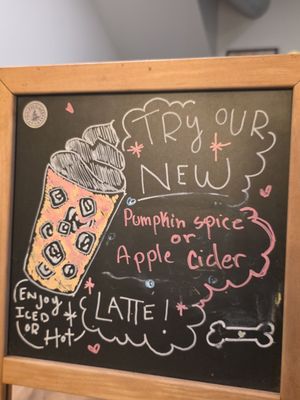 TRY OUR
NEW
Pumpkin spice
or
Apple Cider
LATTE!
ENJOY
ICED
OR HOT